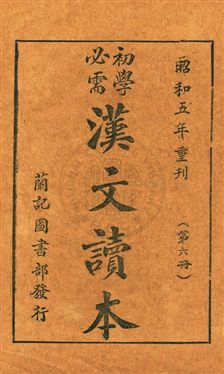 昭和五年重刊
（第六冊）
初學
必需
漢文讀本
蘭記圖書部發行